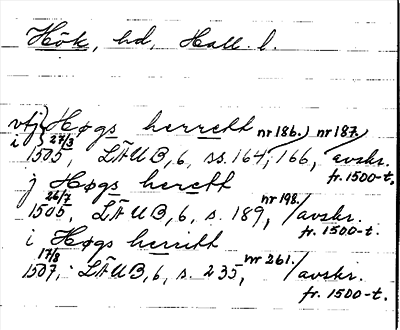 Hök, hd, Hall. l.
vtj } Høgs herrett nr 186.) nr 187.
i } 27/3
1505, LÄUB, 6, ss. 164, 166, avskr.
fr. 1500-t.
j Høgs herett
26/7 nr 198.
1505, LÄUB, 6, s. 189, / avskr.
fr. 1500-t.
i Høgs herritt
17/8 nr 261.
1507, LÄUB, 6, s. 235, / avskr.
fr. 1500-t.